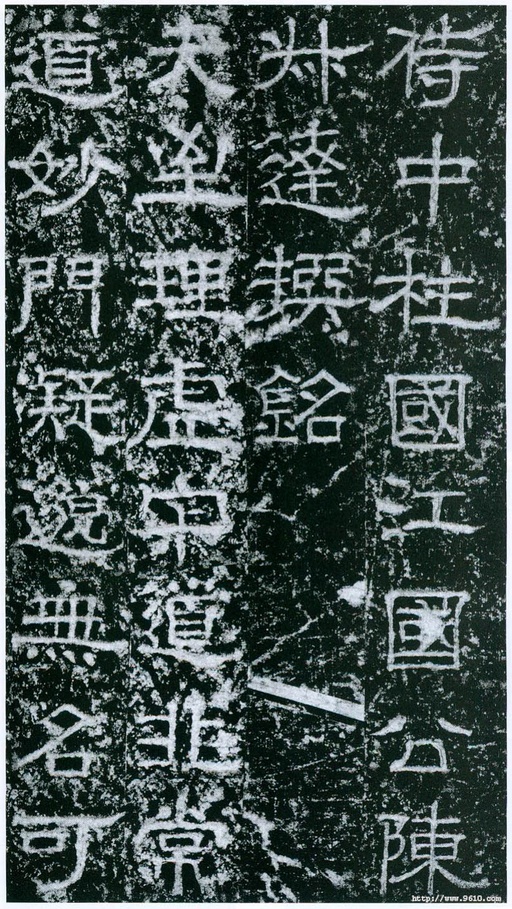 侍中柱國江國公陳
叔達撰銘
夫至理虛中道非常
道妙門凝邈無名可
http://www.9610.com